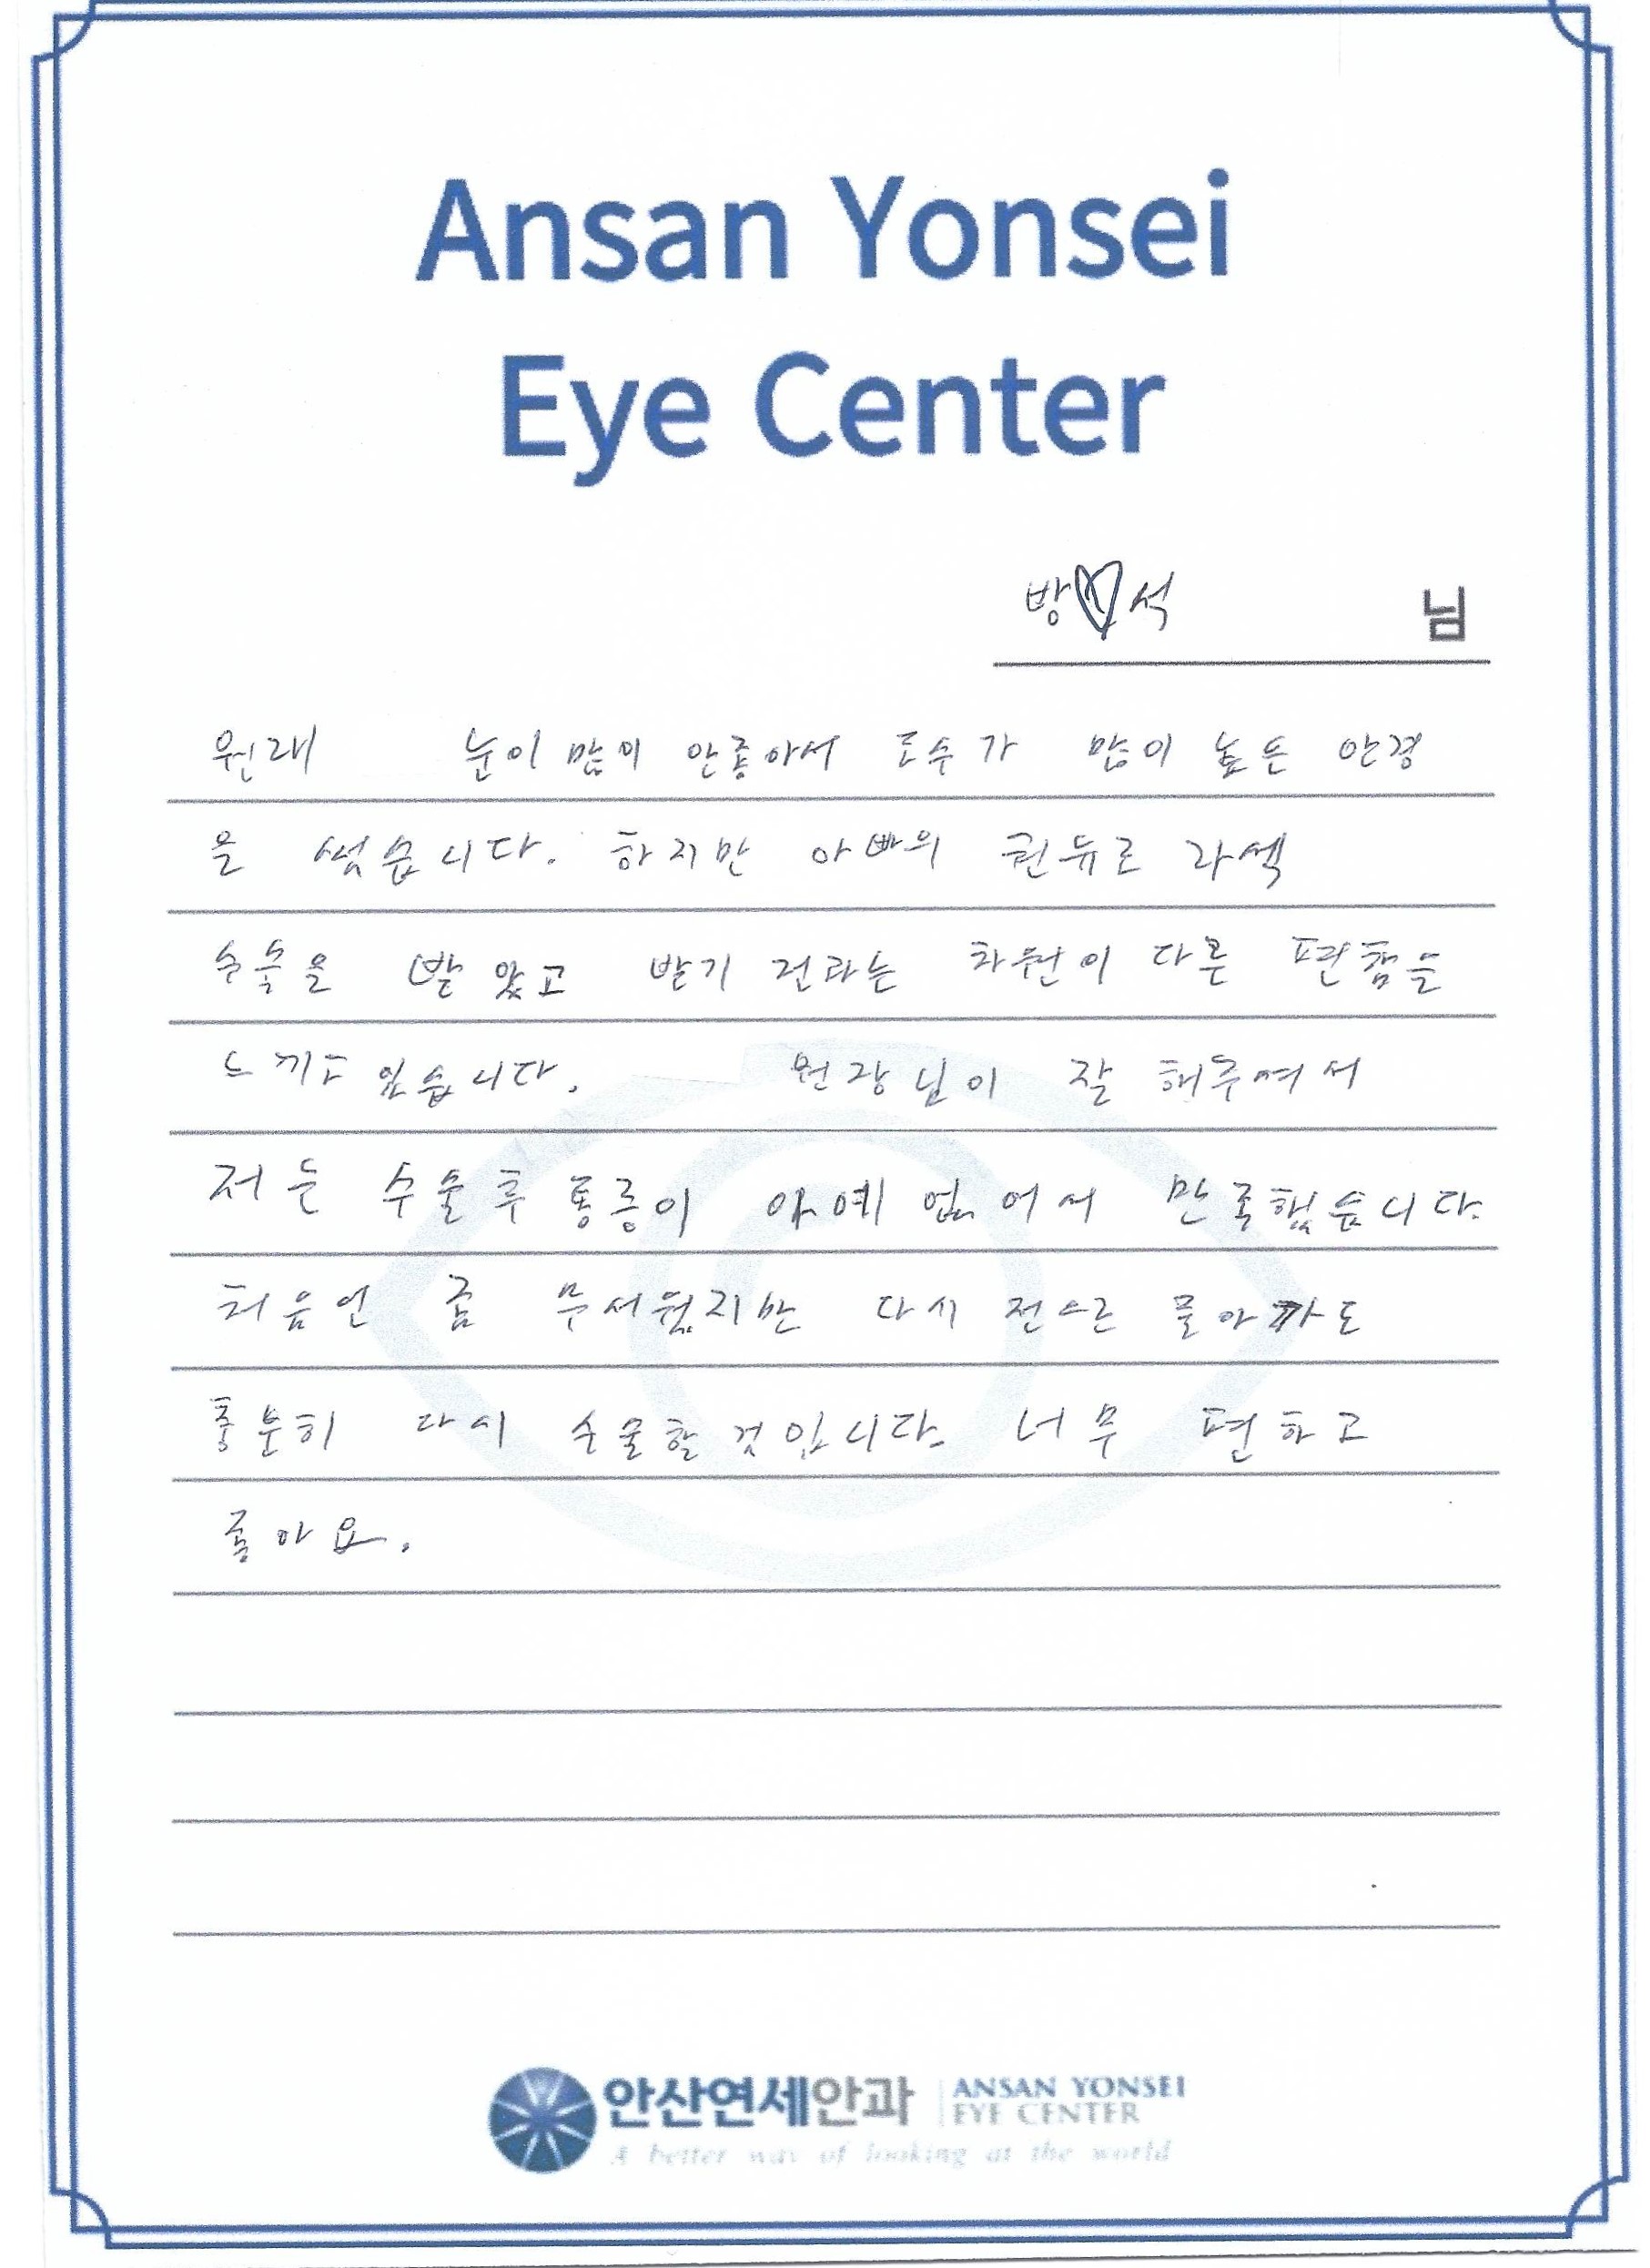 Ansan Yonsei
Eye Center
방♡석 님
원래 눈이 많이 안좋아서 도수가 많이 높은 안경
을 썼습니다. 하지만 아빠의 권유로 라섹
수술을 받았고 받기 전과는 차원이 다른 편함을
느끼고 있습니다. 원장님이 잘 해주셔서
저는 수술후 통증이 아예 없어서 만족했습니다.
처음엔 좀 무서웠지만 다시 전으로 돌아가도
충분히 다시 수술할 것입니다. 너무 편하고
좋아요.
안산연세안과 ANSAN YONSEI
EYE CENTER
A better way of looking at the world